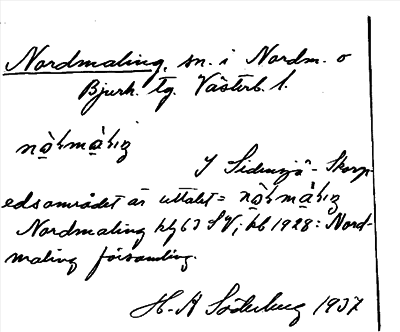 Nordmaling, sn. i Nordm. o
Bjurh. tg. Västerb. l.
I Sidensjö - Skorp
edsområdet är uttalet =
Nordmaling 1928: Nord-
maling församling.
H-A Söderberg 1937